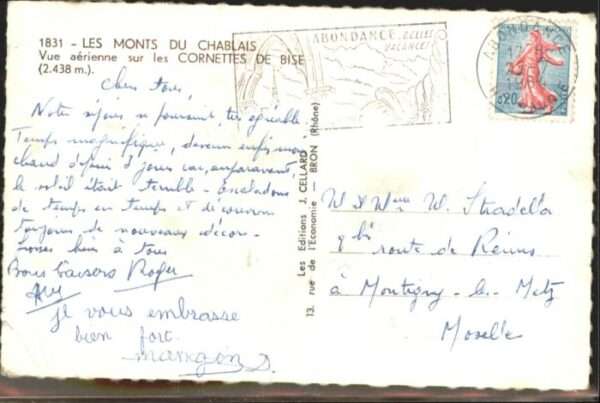 1831 - LES MONTS DU CHABLAIS
Vue aérienne sur les CORNETTES DE BISE
(2.438 m.).
ABONDANCE
ABONDANCE
0,20
Chers tous,
Notre séjour se poursuit, très agréable.
Temps magnifique, devenu enfin
chaud depuis 2 jours car, auparavant,
le soleil était terrible - Escalades
de temps en temps et découvrons
toujours de nouveaux décors -
bien à tous
Bons baisers Roger
je vous embrasse
bien fort
Les Editions J. CELLARD
13, rue de l'Economie — BRON (Rhône)
M et Mme W. Stradella
9 bis
route de Reims
à Montigny-les-Metz
Moselle